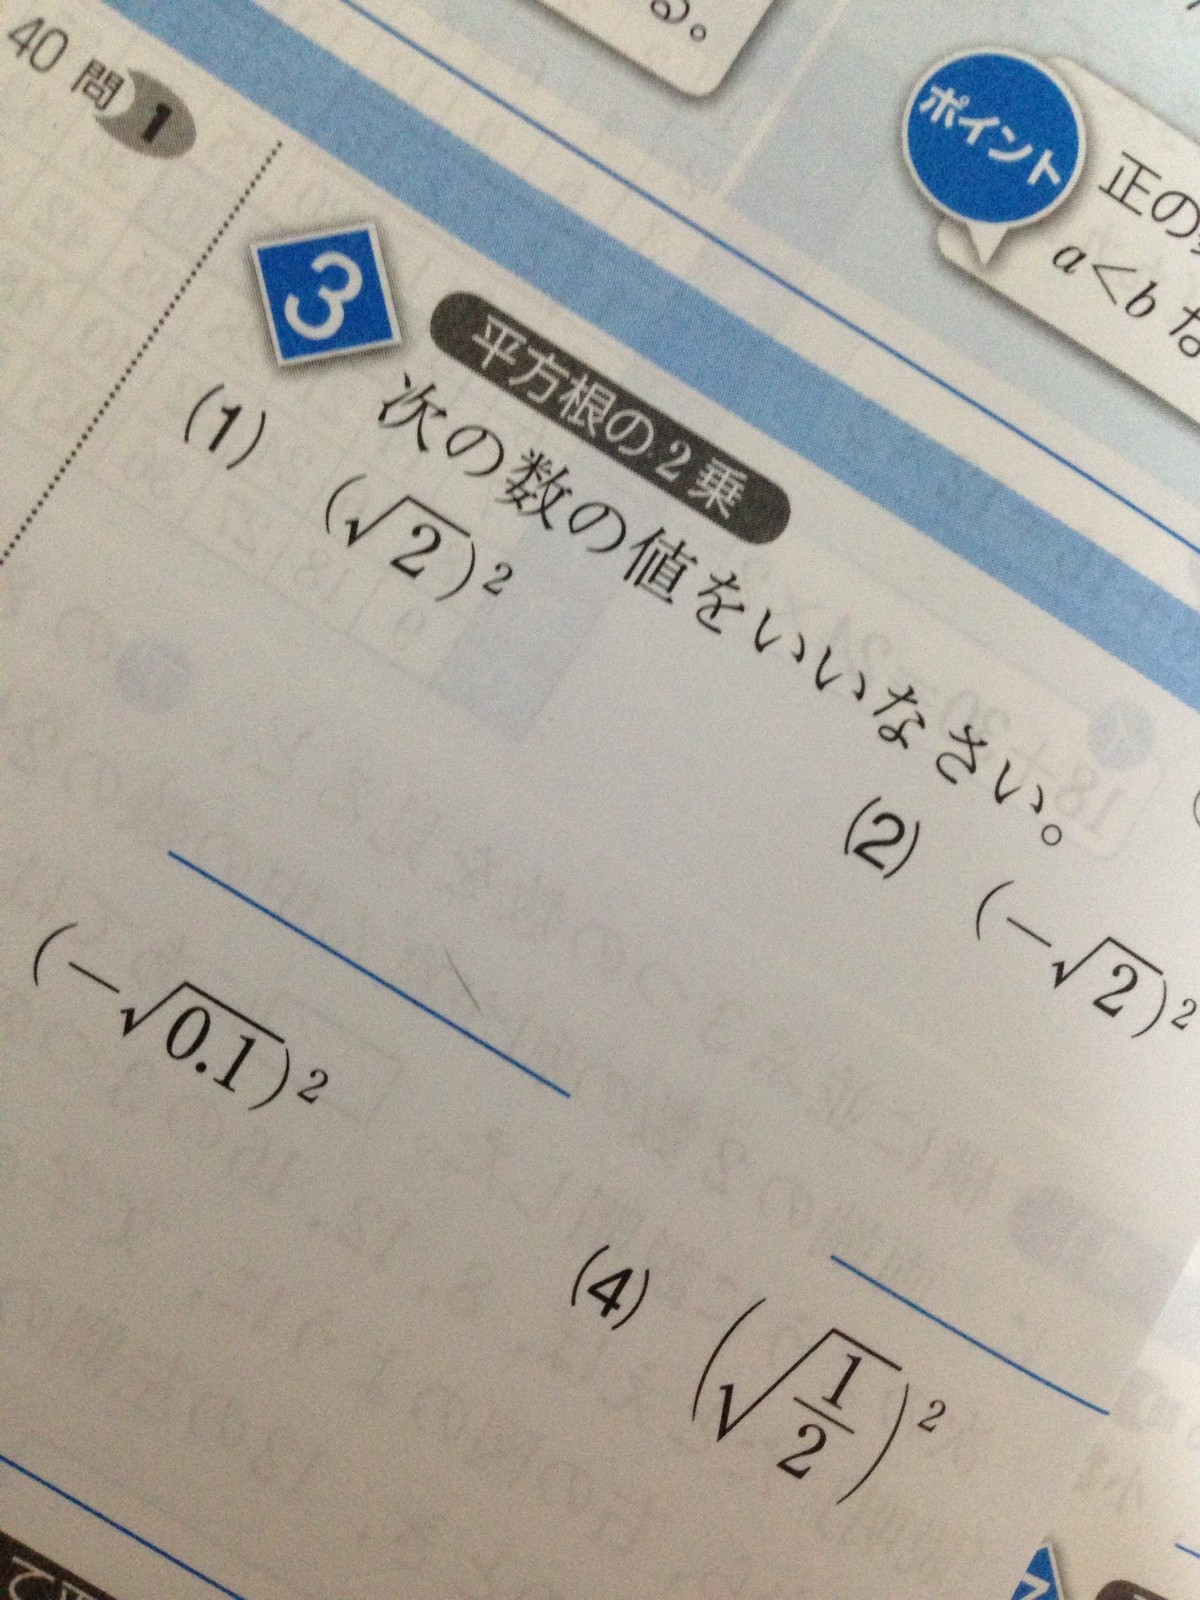 る。
ポイント
正の
a<b な
40 問 1
3 平方根の2乗
次の数の値をいいなさい。
(1) (√2)²
(2) (−√2)²
(−√0.1)²
(4) (√(1/2))²